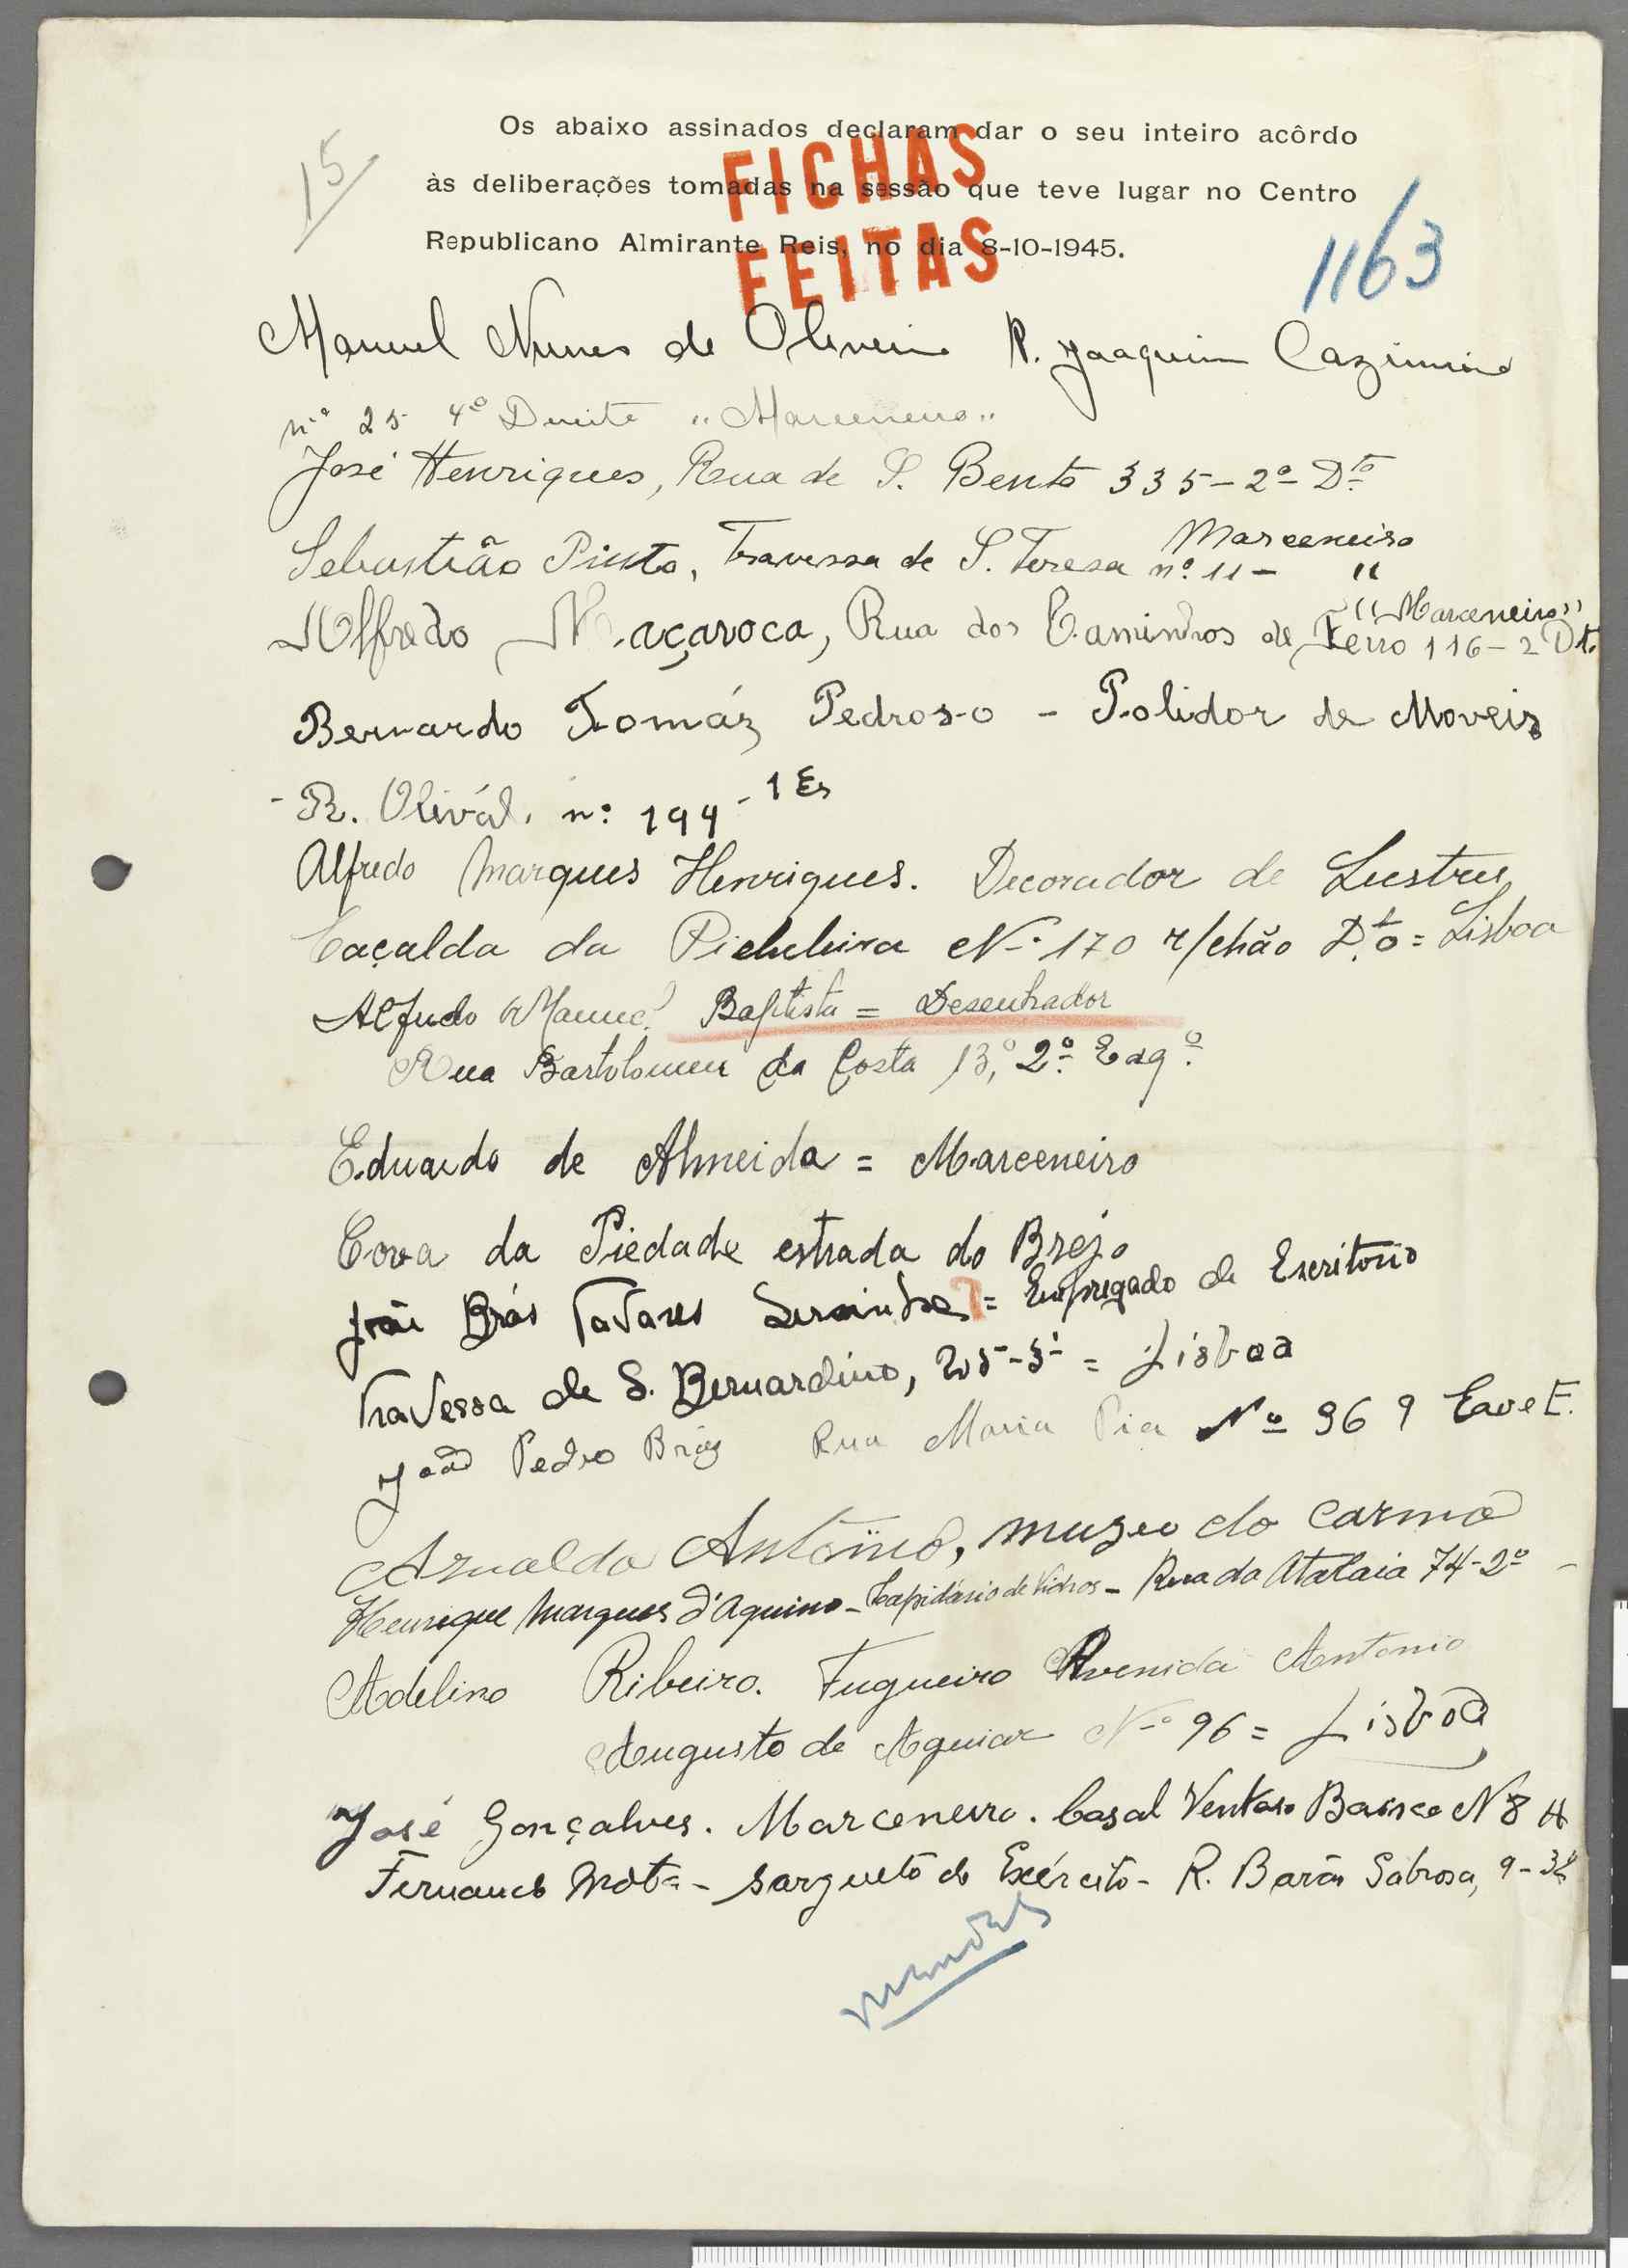 15
Os abaixo assinados declaram dar o seu inteiro acôrdo
às deliberações tomadas na sessão que teve lugar no Centro
Republicano Almirante Reis, no dia 8-10-1945.
FICHAS
FEITAS
1163
Manuel Nunes de Oliveira R. Joaquim Cazimiro
nº 25 4º Direito "Marceneiro"
José Henriques, Rua de S. Bento 335-2º Dto
Marceneiro
Sebastião Pinto, Travessa de S. Teresa nº 11- "
"Marceneiro"
Alfredo Maçaroca, Rua dos Caminhos de Ferro 116-2 Dt.
Bernardo Tomáz Pedroso - Polidor de Moveis
- R. Olivál. nº 194 - 1 Es
Alfredo Marques Henriques. Decorador de Lustres
Caçalda da Picheleira Nº 170 r/chão D.to = Lisboa
Alfredo Manuel Baptista = Desenhador
Rua Bartolomeu da Costa 13, 2º Esqº
Eduardo de Almeida = Marceneiro
Cova da Piedade estrada do Brejo
João Brás Tavares = Empregado de Escritorio
Travessa de S. Bernardino, = Lisboa
João Pedro Bráz Rua Maria Pia Nº 369
Arnaldo António, museu do Carmo
Henrique Marques d'Aquino - Lapidário de Vidros - Rua da Atalaia 74-2º -
Adelino Ribeiro. Fugueiro Avenida Antonio
Augusto de Aguiar Nº 96 = Lisboa
José Gonçalves. Marceneiro. Casal Ventoso Baixo N 8 A
Fernando Mota - Sargento do Exército - R. Barão Sabrosa, 9-3º